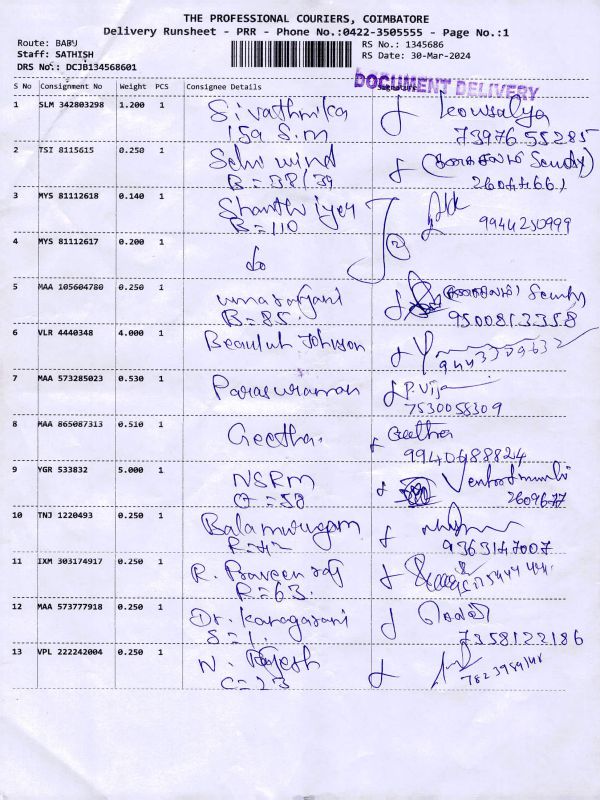 THE PROFESSIONAL COURIERS, COIMBATORE
Delivery Runsheet - PRR - Phone No.:0422-3505555 - Page No.:1
Route: BABU
Staff: SATHISH
DRS No.: DCJB134568601
RS No.: 1345686
RS Date: 30-Mar-2024
DOCUMENT DELIVERY
S No Consignment No Weight PCS Consignee Details Signature
1 SLM 342803298 1.200 1 Sivathmika Kowsalya
159 S.m 73976 55285
2 TSI 8115615 0.250 1 Selvi wind
B = 38/39
3 MYS 81112618 0.140 1 Shanthi iyer
B = 110 9944250999
4 MYS 81112617 0.200 1 do
5 MAA 105604780 0.250 1 umarajani
B = 85. 9500813358
6 VLR 4440348 4.000 1 Beaulah Johnson
9443309632
7 MAA 573285023 0.530 1 Parasuraman P. Vija
7530058309
8 MAA 865087313 0.510 1 Geetha. Geetha
9940688824
9 YGR 533832 5.000 1 NSRM
2609677
10 TNJ 1220493 0.250 1 Balamurugan
R = 42 9363147007
11 IXM 303174917 0.250 1 R. Praveen raj
R = 63.
12 MAA 573777918 0.250 1 Dr. Kanagarani
S = 1. 7358122186
13 VPL 222242004 0.250 1 N. Rajesh
C = 23